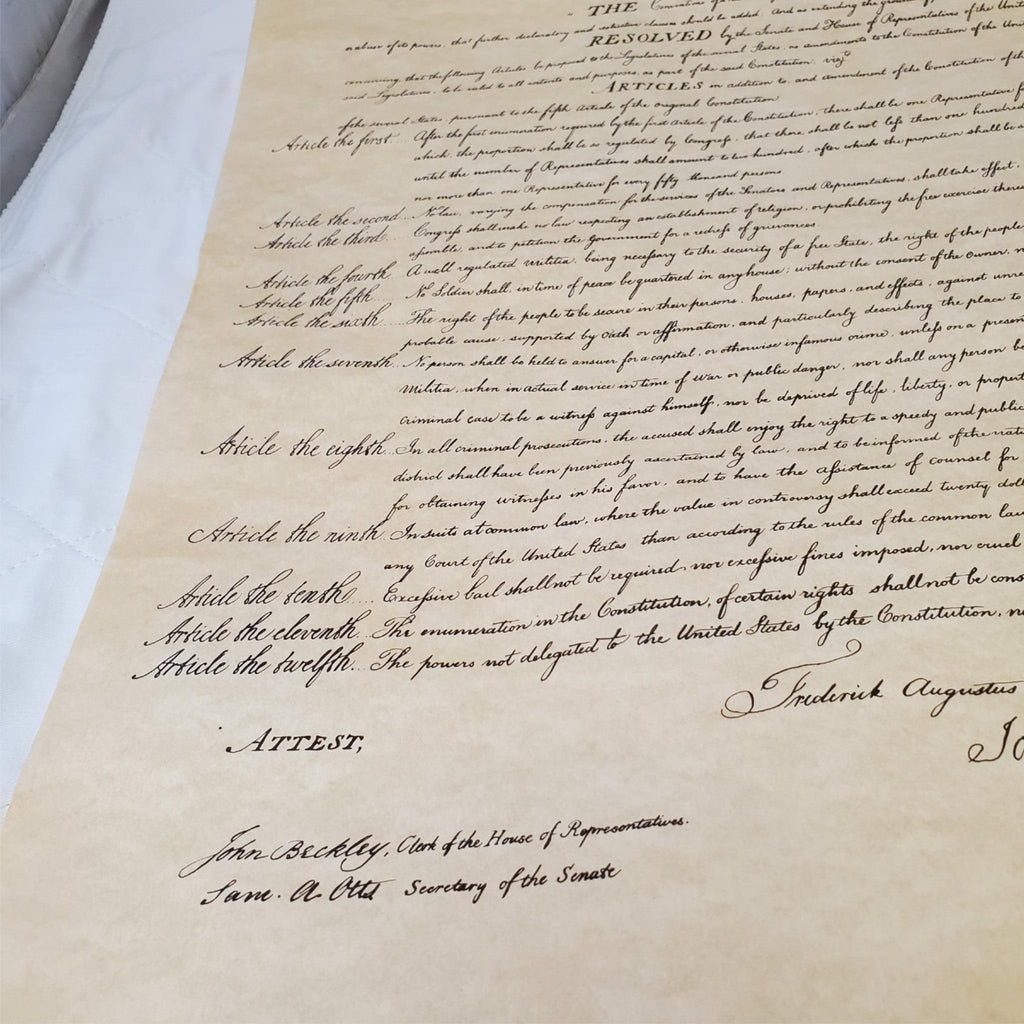 THE Conventions of
abuse of its powers, that further declaratory and restrictive clauses should be added: And as extending the ground of
RESOLVED by the Senate and House of Representatives of the Unit
concurring, that the following Articles be proposed to the Legislatures of the several States, as amendments to the Constitution of the Uni
said Legislatures, to be valid to all intents and purposes, as part of the said Constitution; viz.
ARTICLES in addition to, and amendment of the Constitution of the
of the several States, pursuant to the fifth Article of the original Constitution
Article the first... After the first enumeration required by the first Article of the Constitution, there shall be one Representative f
which, the proportion shall be so regulated by Congress, that there shall be not less than one hundred
until the number of Representatives shall amount to two hundred, after which the proportion shall be s
nor more than one Representative for every fifty thousand persons
Article the second... No law, varying the compensation for the services of the Senators and Representatives, shall take effect,
Article the third... Congress shall make no law respecting an establishment of religion, or prohibiting the free exercise there
assemble, and to petition the Government for a redress of grievances.
Article the fourth. A well regulated Militia, being necessary to the security of a free State, the right of the people
Article the fifth... No Soldier shall, in time of peace be quartered in any house, without the consent of the owner, n
Article the sixth... The right of the people to be secure in their persons, houses, papers, and effects, against unre
probable cause, supported by Oath or affirmation, and particularly describing the place to
Article the seventh. No person shall be held to answer for a capital, or otherwise infamous crime, unless on a presen
Militia, when in actual service in time of War or public danger, nor shall any person be
criminal case to be a witness against himself, nor be deprived of life, liberty, or propert
Article the eighth... In all criminal prosecutions, the accused shall enjoy the right to a speedy and public
district shall have been previously ascertained by law, and to be informed of the natu
for obtaining witnesses in his favor, and to have the assistance of counsel for
Article the ninth. In suits at common law, where the value in controversy shall exceed twenty doll
any Court of the United States than according to the rules of the common law
Article the tenth... Excessive bail shall not be required nor excessive fines imposed, nor cruel
Article the eleventh. The enumeration in the Constitution, of certain rights shall not be cons
Article the twelfth. The powers not delegated to the United States by the Constitution, n
Frederick Augustus
Jo
ATTEST,
John Beckley, Clerk of the House of Representatives.
Sam. A Otis Secretary of the Senate